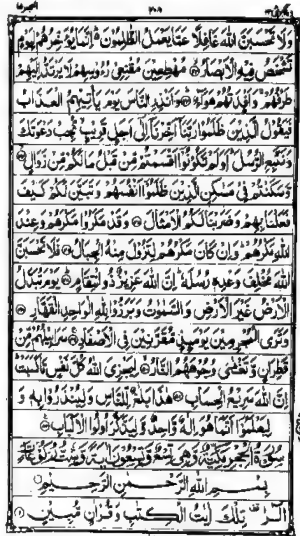 وَلَا تَحْسَبَنَّ اللّٰهَ غَافِلًا عَمَّا يَعْمَلُ الظّٰلِمُوْنَ ۬ اِنَّمَا يُؤَخِّرُهُمْ لِيَوْمٍ
تَشْخَصُ فِيْهِ الْاَبْصَارُ ۙ مُهْطِعِيْنَ مُقْنِعِيْ رُءُوْسِهِمْ لَا يَرْتَدُّ اِلَيْهِمْ
طَرْفُهُمْ ۚ وَاَفْـِٕدَتُهُمْ هَوَآءٌ ۗ وَاَنْذِرِ النَّاسَ يَوْمَ يَاْتِيْهِمُ الْعَذَابُ
فَيَقُوْلُ الَّذِيْنَ ظَلَمُوْا رَبَّنَآ اَخِّرْنَآ اِلٰٓى اَجَلٍ قَرِيْبٍ ۙ نُّجِبْ دَعْوَتَكَ
وَنَتَّبِعِ الرُّسُلَ ۗ اَوَلَمْ تَكُوْنُوْٓا اَقْسَمْتُمْ مِّنْ قَبْلُ مَا لَكُمْ مِّنْ زَوَالٍ ۙ
وَّسَكَنْتُمْ فِيْ مَسٰكِنِ الَّذِيْنَ ظَلَمُوْٓا اَنْفُسَهُمْ وَتَبَيَّنَ لَكُمْ كَيْفَ
فَعَلْنَا بِهِمْ وَضَرَبْنَا لَكُمُ الْاَمْثَالَ ۞ وَقَدْ مَكَرُوْا مَكْرَهُمْ وَعِنْدَ
اللّٰهِ مَكْرُهُمْ ۗ وَاِنْ كَانَ مَكْرُهُمْ لِتَزُوْلَ مِنْهُ الْجِبَالُ ۞ فَلَا تَحْسَبَنَّ
اللّٰهَ مُخْلِفَ وَعْدِهٖ رُسُلَهٗ ۗ اِنَّ اللّٰهَ عَزِيْزٌ ذُو انْتِقَامٍ ۗ يَوْمَ تُبَدَّلُ
الْاَرْضُ غَيْرَ الْاَرْضِ وَالسَّمٰوٰتُ وَبَرَزُوْا لِلّٰهِ الْوَاحِدِ الْقَهَّارِ ۞
وَتَرَى الْمُجْرِمِيْنَ يَوْمَىِٕذٍ مُّقَرَّنِيْنَ فِى الْاَصْفَادِ ۚ سَرَابِيْلُهُمْ مِّنْ
قَطِرَانٍ وَّتَغْشٰى وُجُوْهَهُمُ النَّارُ ۙ لِيَجْزِيَ اللّٰهُ كُلَّ نَفْسٍ مَّا كَسَبَتْ ۗ
اِنَّ اللّٰهَ سَرِيْعُ الْحِسَابِ ۞ هٰذَا بَلٰغٌ لِّلنَّاسِ وَلِيُنْذَرُوْا بِهٖ وَ
لِيَعْلَمُوْٓا اَنَّمَا هُوَ اِلٰهٌ وَّاحِدٌ وَّلِيَذَّكَّرَ اُولُوا الْاَلْبَابِ ۞
سُوْرَةُ الْحِجْرِ مَكِّيَّةٌ وَّهِيَ تِسْعٌ وَّتِسْعُوْنَ اٰيَةً وَّسِتُّ رُكُوْعَاتٍ
بِسْمِ اللّٰهِ الرَّحْمٰنِ الرَّحِيْمِ
الٓرٰ ۚ تِلْكَ اٰيٰتُ الْكِتٰبِ وَقُرْاٰنٍ مُّبِيْنٍ ۞